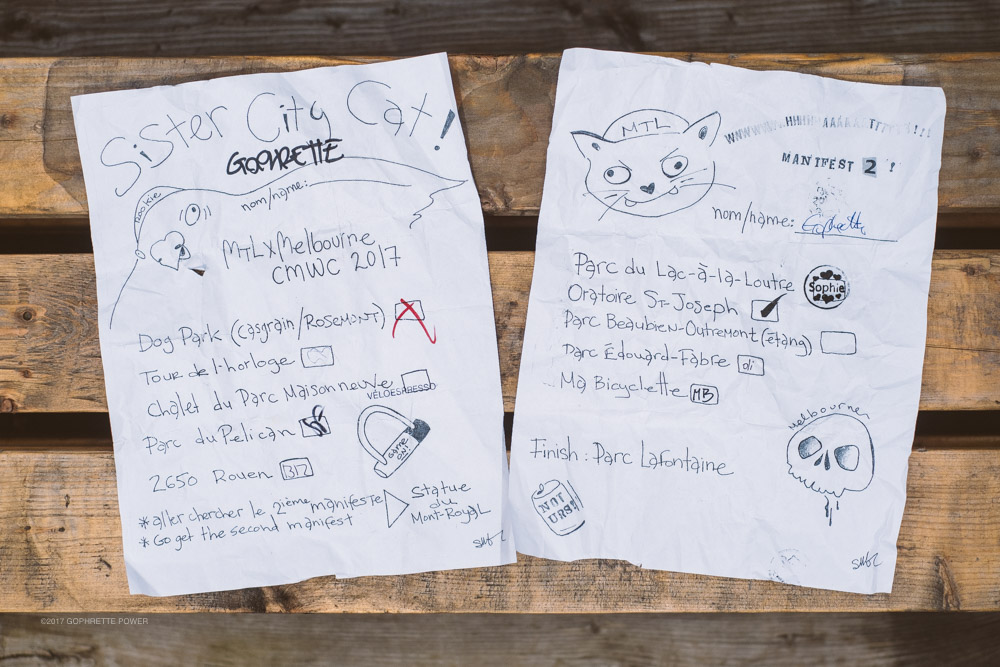 Sister City Cat!
GOPHRETTE
nom/name:
rookie
MTLXMelbourne
CMWC 2017
Dog Park (Casgrain/ROSEMONT)
Tour de l'horloge
Chalet du Parc Maisonneuve
VÉLOESPRESSO
Parc du Pelican
GAME ON!
2650 Rouen
* aller chercher le 2ième manifeste
* Go get the second manifest
Statue du Mont-Royal
MTL
WWWWWWWHHHHAAAAAATTTTT!!!!
MANIFEST 2 !
nom/name: Gophrette
Parc du Lac-à-la-Loutre
Sophie
Oratoire St-Joseph
Parc Beaubien-Outremont (étang)
Parc Édouard-Fabre di
Ma Bicyclette MB
Melbourne
Finish : Parc Lafontaine
NOT URS!
©2017 GOPHRETTE POWER